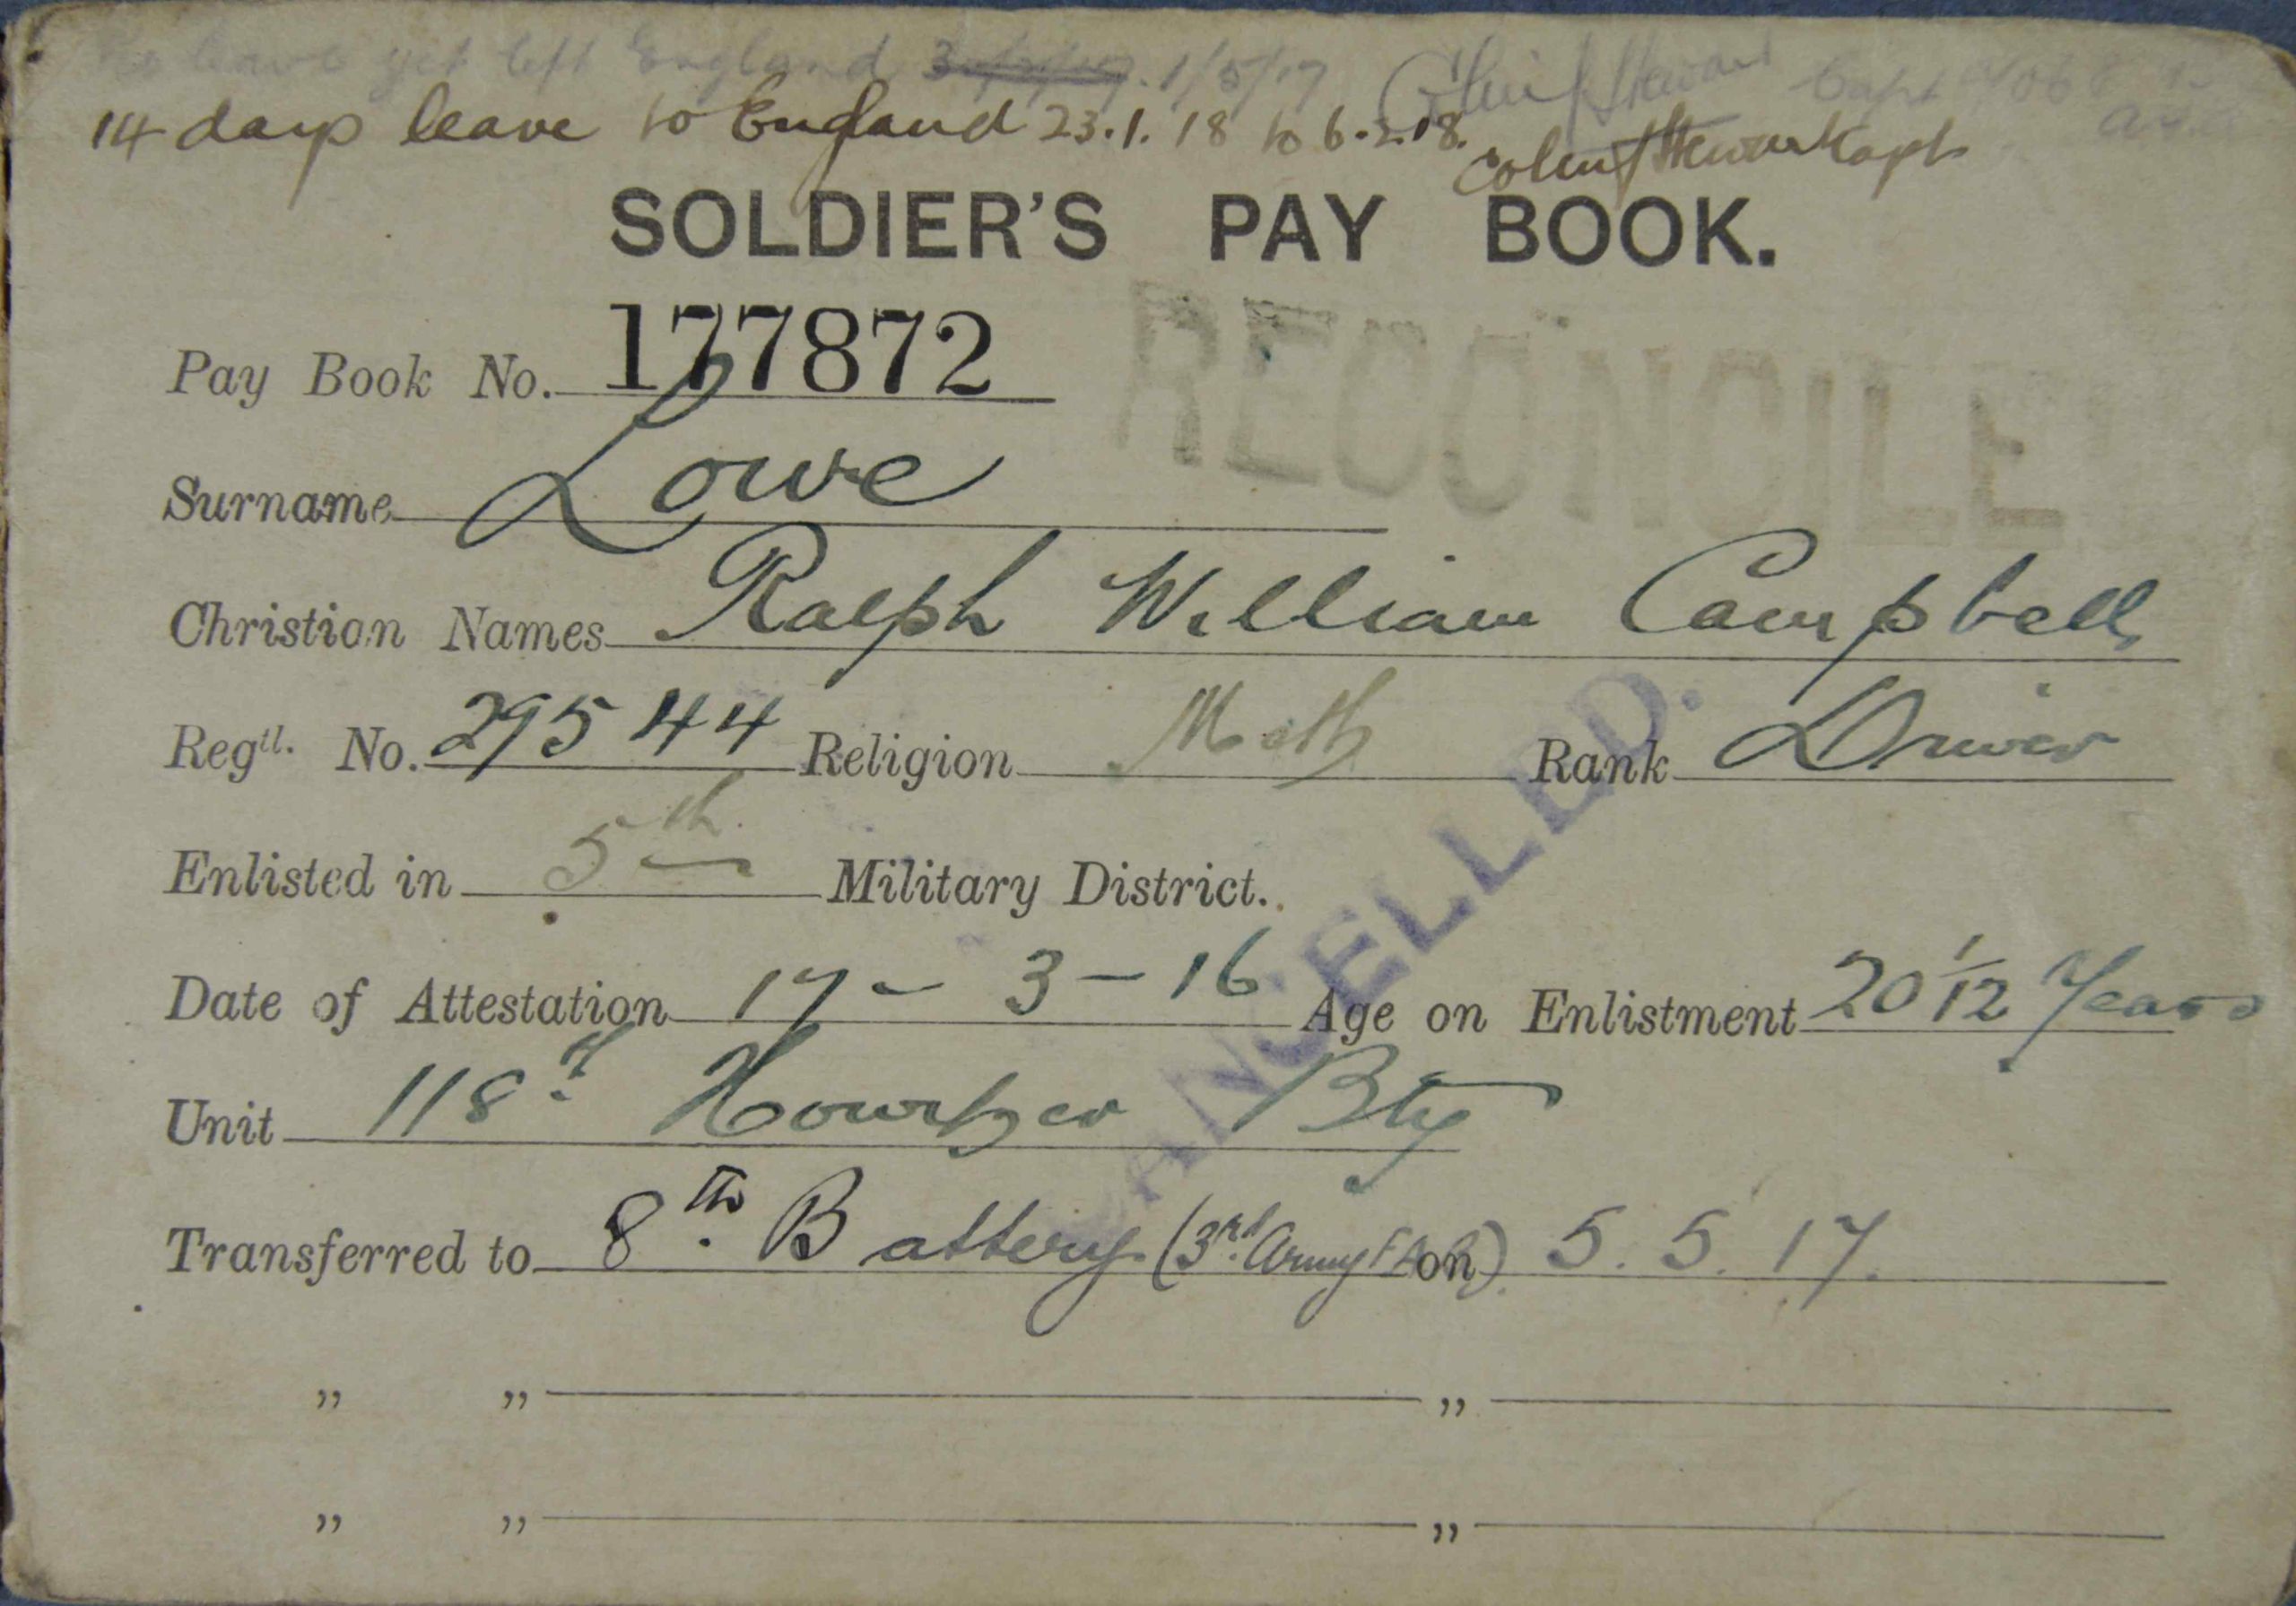 No leave yet left England 1/5/17 Colin J Stewart Capt
14 days leave to England 23.1.18 to 6.2.18. Colin J Stewart Capt
SOLDIER'S PAY BOOK.
Pay Book No. 177872
RECONCILED
Surname Lowe
Christian Names Ralph William Campbell
Regtl. No. 29544 Religion Meth Rank Driver
Enlisted in 5th Military District.
CANCELLED.
Date of Attestation 17 - 3 - 16 Age on Enlistment 20 1/12 Years
Unit 118th Howitzer Bty
Transferred to 8th Battery (3rd Army FAB) on 5.5.17.
" " "
" " "